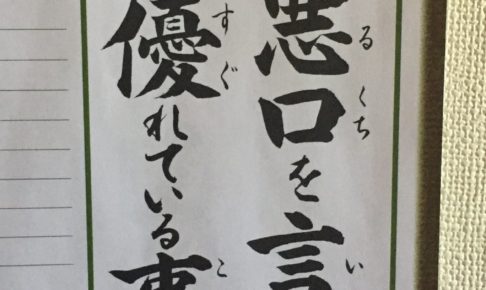 悪口を言
優れている事